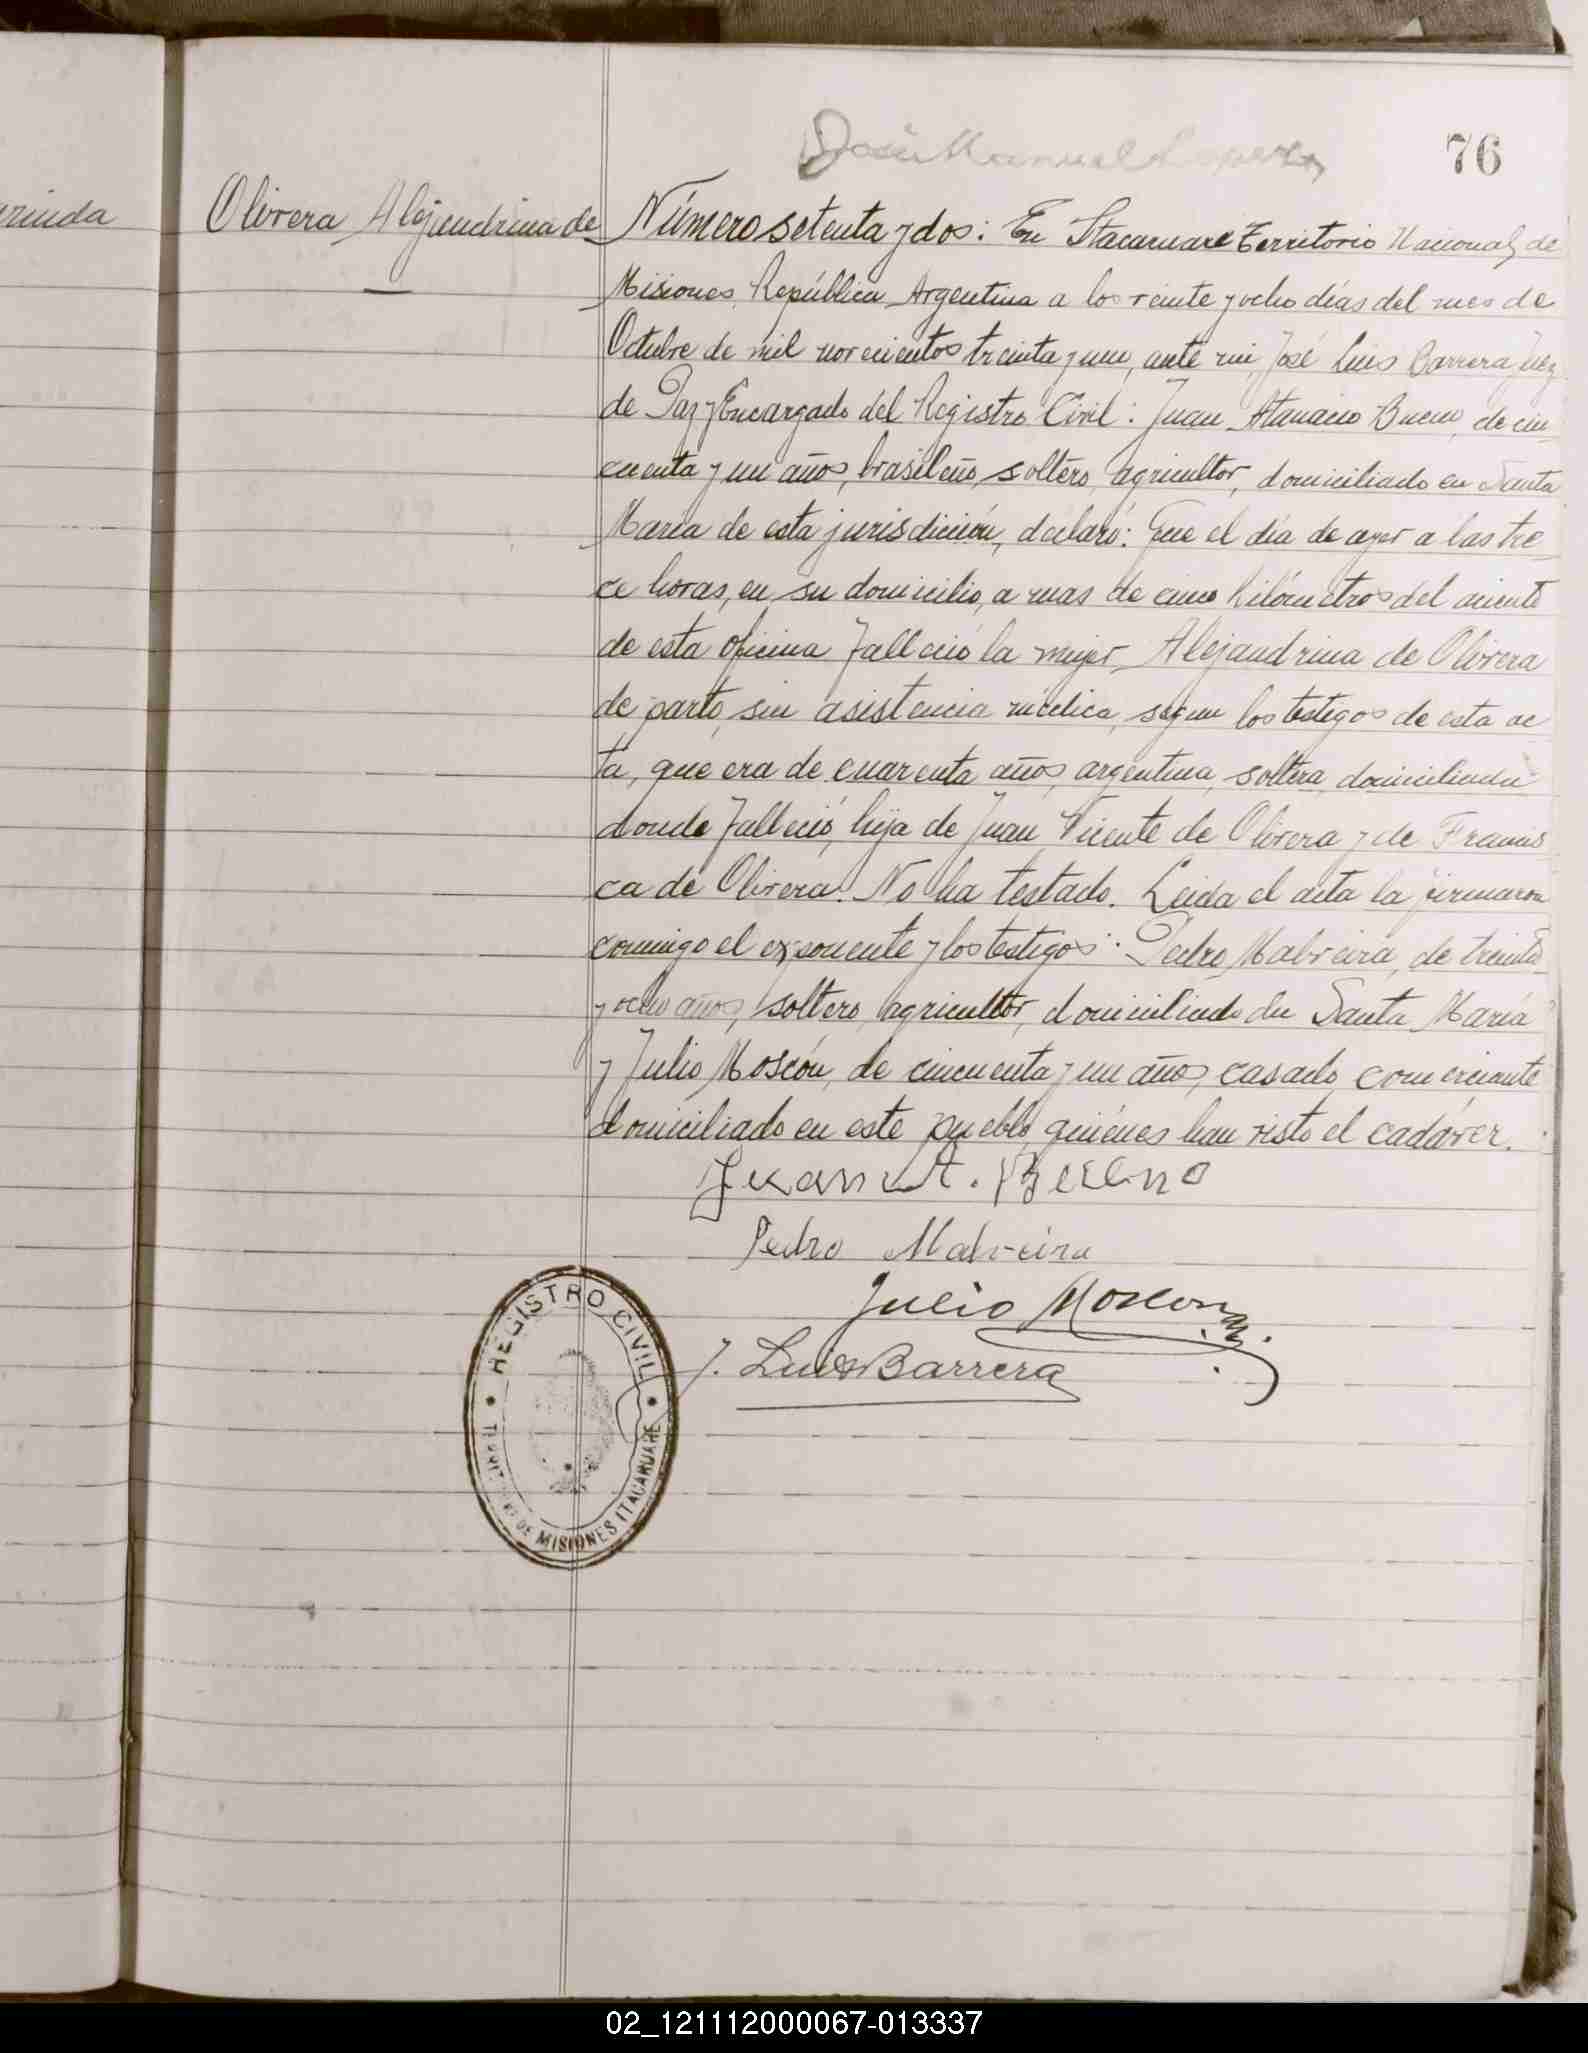 76
rinda
Olivera Alejandrina de
Número setenta y dos: En Itacaruaré Territorio Nacional de
Misiones República Argentina a los veinte y ocho días del mes de
Octubre de mil novecientos treinta y uno, ante mi, José Luis Barrera Juez
de Paz y Encargado del Registro Civil: Juan Atanacio Bueno, de cin-
cuenta y un años, brasileño, soltero, agricultor, domiciliado en Santa
María de esta jurisdicción, declaró: Que el día de ayer a las tre-
ce horas, en su domicilio, a mas de cinco kilómetros del asiento
de esta oficina falleció la mujer Alejandrina de Olivera
de parto, sin asistencia médica, segun los testigos de esta ac
ta, que era de cuarenta años, argentina, soltera, domiciliada
donde falleció, hija de Juan Vicente de Olivera y de Francis
ca de Olivera. No ha testado. Leida el acta la firmaron
conmigo el exponente y los testigos: Pedro Mabreira, de treinta
y ocho años, soltero, agricultor, domiciliado en Santa María
y Julio Moscón, de cincuenta y un años, casado, comerciante
domiciliado en este pueblo, quiénes han visto el cadáver.
Juan A. Bueno
Pedro Mabreira
Julio Moscon
J. Luis Barrera
REGISTRO CIVIL
TERRITORIO DE MISIONES ITACARUARE
02_121112000067-013337